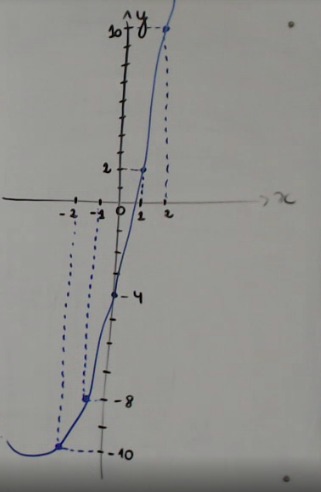 y
10
2
-2 -1 0 1 2 x
-4
-8
-10